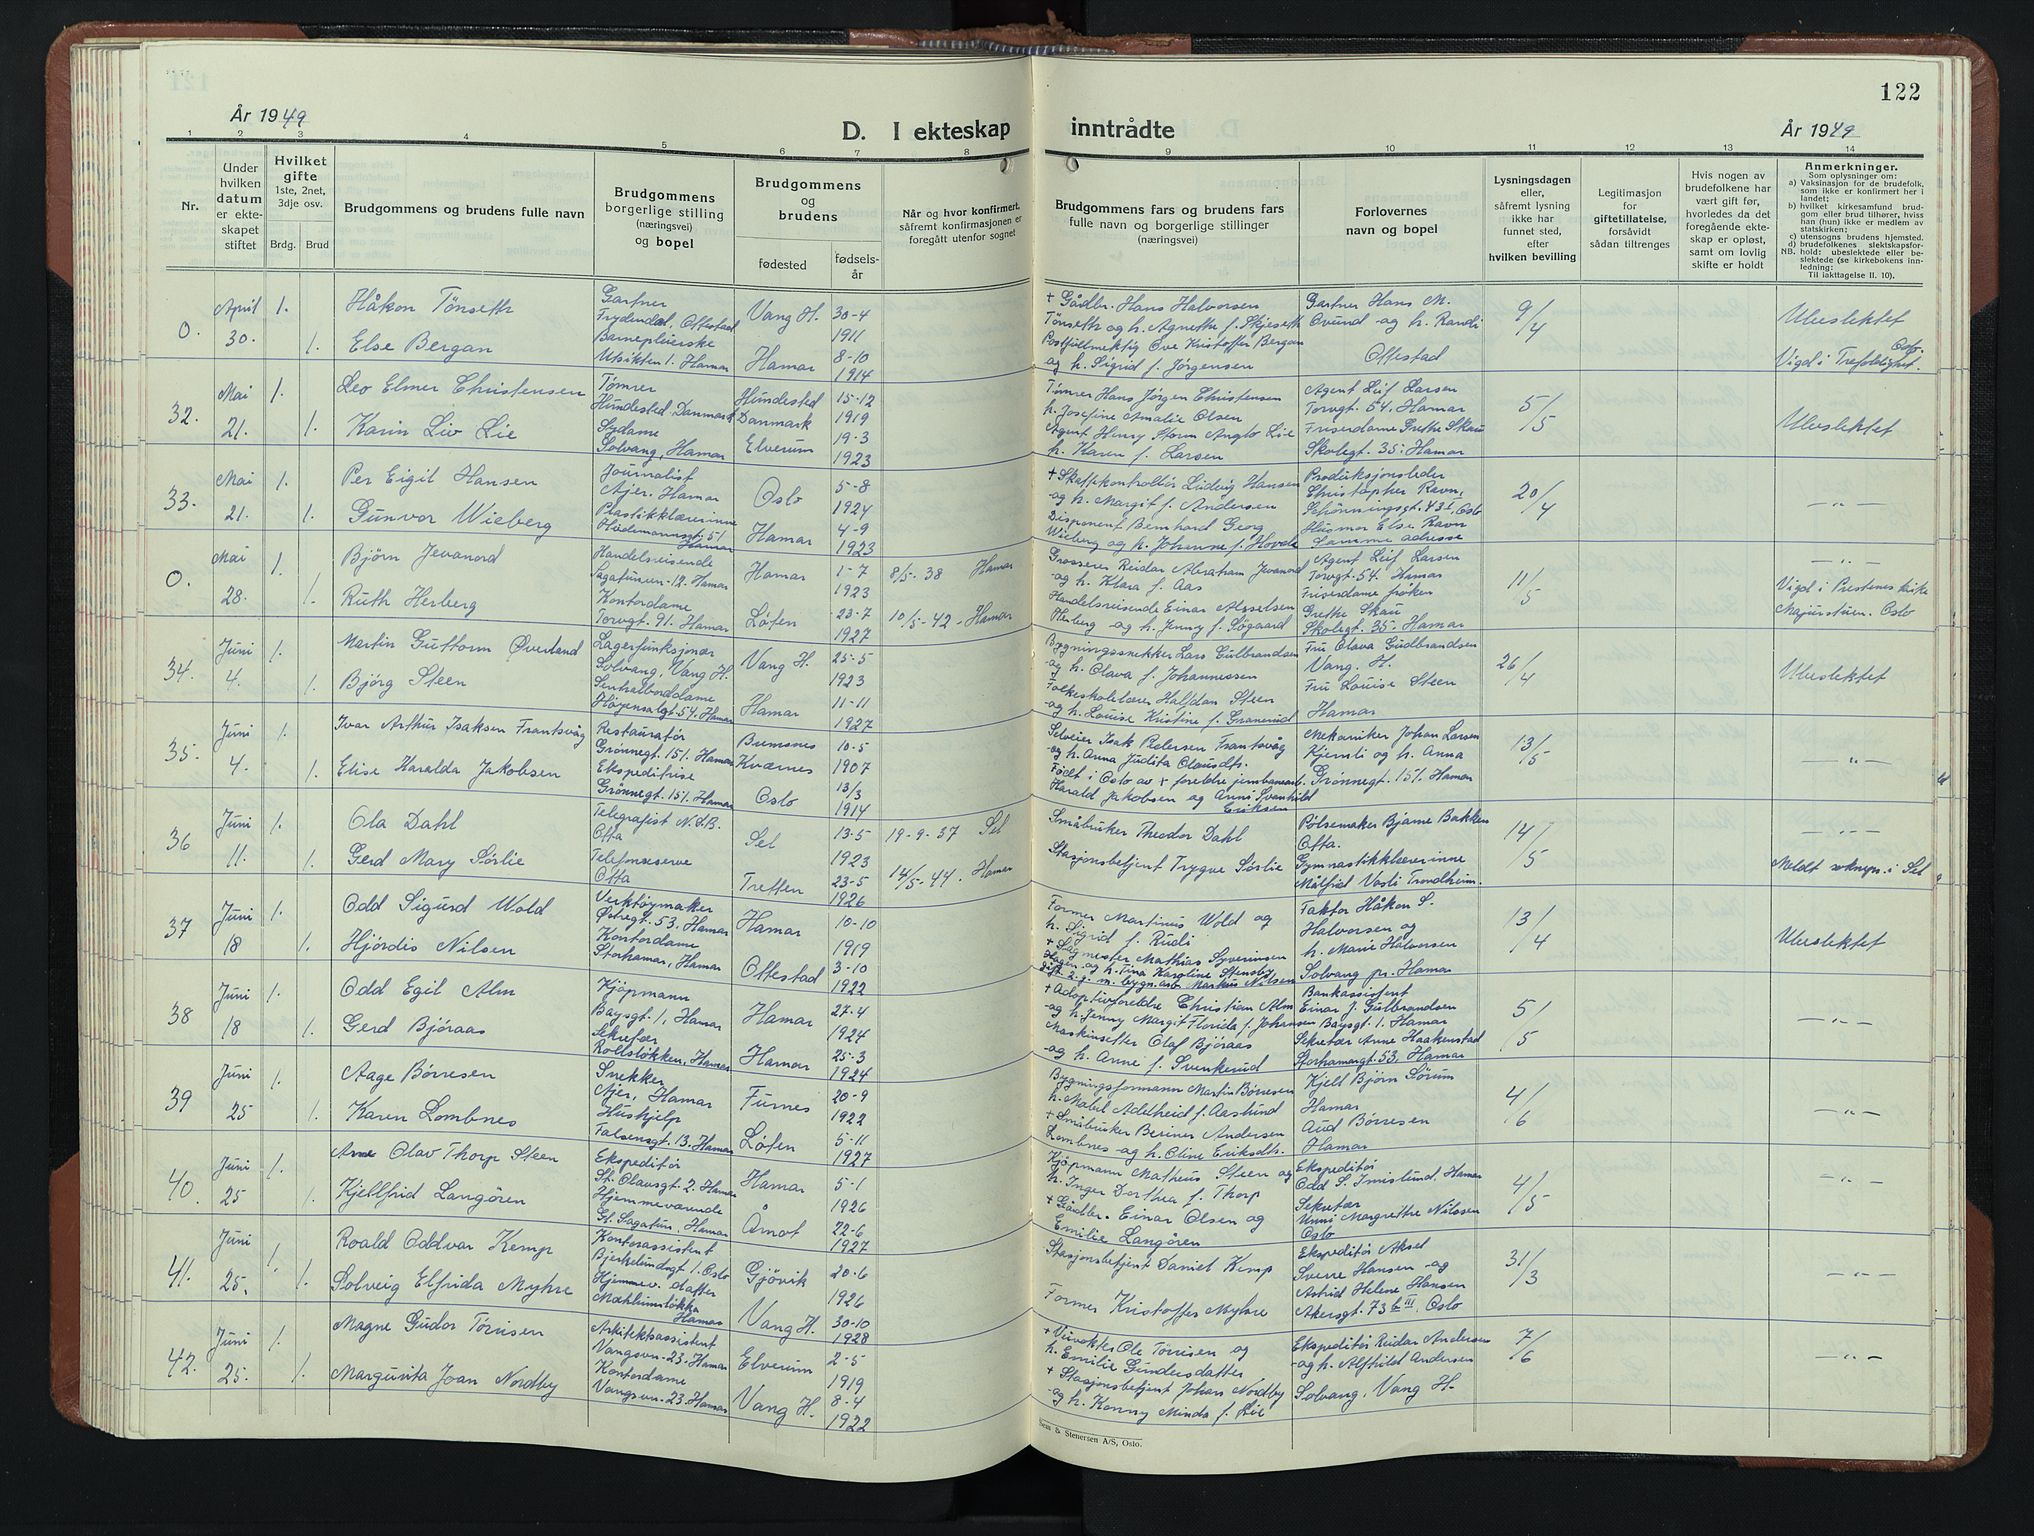 122
År 1949
D. I ekteskap inntrådte
År 1949
1 2 3 4 5 6 7 8 9 10 11 12 13 14
Nr.
Under hvilken datum er ekteskapet stiftet
Hvilket gifte
1ste, 2net, 3dje osv.
Brdg. Brud
Brudgommens og brudens fulle navn
Brudgommens borgerlige stilling (næringsvei) og bopel
Brudgommens og brudens
fødested
fødselsår
Når og hvor konfirmert, såfremt konfirmasjonen er foregått utenfor sognet
Brudgommens fars og brudens fars fulle navn og borgerlige stillinger (næringsvei)
Forlovernes navn og bopel
Lysningsdagen eller, såfremt lysning ikke har funnet sted, efter hvilken bevilling
Legitimasjon for giftetillatelse, forsåvidt sådan tiltrenges
Hvis nogen av brudefolkene har vært gift før, hvorledes da det foregående ekteskap er opløst, samt om lovlig skifte er holdt
Anmerkninger.
Som oplysninger om:
a) Vaksinasjon for de brudefolk, som ikke er konfirmert her i landet;
b) hvilket kirkesamfund brudgom eller brud tilhører, hviss han (hun) ikke er medlem av statskirken;
c) utensogns brudens hjemsted.
d) brudefolkenes slektskapsforhold: ubeslektede eller beslektede (se kirkebokens innledning:
NB. Til iakttagelse II. 10).
0. April 30. 1. 1.
Håkon Tönseth
Else Bergan
Gartner
Frydendal, Ottestad
Barnepleierske
Utsikten 1. Hamar
Vang H. 30-4 1911
Hamar 8-10 1914
+ Gådbr. Hans Halvorsen
Tönseth og h. Agnethe f. Skjeseth
Postfullmektig Ove Kristoffer Bergan
og h. Sigrid f. Jörgensen
Gartner Hans M.
Ovund og h. Randi
Ottestad
9/4
Ubeslektet
Vigd i Trefoldighet. Oslo.
32. Mai 21. 1. 1.
Leo Elmer Christensen
Karin Liv Lie
Tömrer
Hundested, Danmark
Sydame
Solvang, Hamar
Hundested Danmark 15-12 1919
Elverum 19-3 1923
Tömrer Hans Jörgen Christensen
h. Josefine Amalie Olsen
Agent Henry Storm Anglo Lie
h. Karen f. Larsen
Agent Leif Larsen
Torvgt. 54. Hamar
Friserdame Grethe Skau
Skolegt. 35. Hamar
5/5
Ubeslektet
33. Mai 21. 1. 1.
Per Eigil Hansen
Gunvor Wieberg
Journalist
Ajer. Hamar
Plastikklærerinne
Hedemannsgt. 51
Hamar
Oslo 5-8 1924
Hamar 4-9 1923
+ Skattekontrollör Ludvig Hansen
og h. Margit f. Andersen
Disponent Bernhard Georg
Wieberg og h. Johanne f. Hovde
Produksjonsleder
Christopher Ravn,
Schönningsgt. 43 I, Oslo
Husmor Else Ravn
Samme adresse
20/4
-"-
0. Mai 28. 1. 1.
Björn Jevanord
Ruth Herberg
Handelsreisende
Sagatunvn. 12. Hamar
Kontordame
Torvgt. 91. Hamar
Hamar 1-7 1923
Löten 23-7 1927
8/5-38 Hamar
10/5-42-Hamar
Grosserer Reidar Abraham Jevanord
og h. Klara f. Aas
Handelsreisende Einar Alsselsen
Herberg og h. Jenny f. Sögaard
Agent Leif Larsen
Torvgt. 54. Hamar
Friserdame fröken
Grethe Skau
Skolegt. 35. Hamar
11/5
-"-
Vigd i Prestenes kirke
Majorstuen. Oslo
34. Juni 4. 1. 1.
Martin Guttorm Överland
Björg Steen
Lagerfunksjonær
Solvang, Vang H.
Sentralborddame
Höyensalgt. 54. Hamar
Vang H. 25-5 1923
Hamar 11-11 1927
Bygningssnekker Lars Gulbrandsen
og h. Olava f. Johannessen
Folkeskolelærer Halfdan Steen
og h. Louise Kristine f. Granerud
Fru Olava Gudbrandsen
Vang. H.
Fru Louise Steen
Hamar
26/4
Ubeslektet
35. Juni 4. 1. 1.
Ivar Arthur Isaksen Frantsvåg
Elise Haralda Jakobsen
Restauratör
Grönnegt. 151. Hamar
Ekspeditrise
Grönnegt. 151. Hamar
Bremsnes Kværnes 10-5 1907
Oslo 13/3 1914
Selveier Isak Pedersen Frantsvåg
og h. Anna Judita Clausdtr.
Födt i Oslo av + foreldre jernbanearb.
Harald Jakobsen og Anni Svanhild
Eriksen
Mekaniker Johan Larsen
Kjemli og h. Anna
Grönnegt. 151. Hamar
13/5
-"-
36 Juni 11. 1. 1.
Ola Dahl
Gerd Mary Sörlie
Telegrafist N.S.B.
Otta
Telefonreserve
Otta
Sel 13-5 1923
Tretten 23-5 1926
19-9-37 Sel
14/5-44. Hamar
Småbruker Theodor Dahl
Stasjonsbetjent Trygve Sörlie
Pölsemaker Bjarne Bakken
Otta.
Gymnastikklærerinne
Målfrid Vasli Trondheim.
14/5
-"-
Meldt soknepr. i Sel
37 Juni 18 1. 1.
Odd Sigurd Wold
Hjördis Nilsen
Verktöymaker
Östregt. 53, Hamar
Kontordame
Storhamar, Hamar
Hamar 10-10 1919
Ottestad 3-10 1922
Former Martinus Wold og
h. Sigrid f. Rudi
+ Sagmester Mathias Syverinsen
Hagen og h. Tina Karoline Stensby
gift 2. g. m. bygn.arb. Markus Nilsen
Faktor Håkon S.
Halvorsen og
h. Marie Halvorsen
Solvang pr. Hamar
13/4
Ubeslektet
38 Juni 18 1. 1.
Odd Egil Alm
Gerd Björaas
Kjöpmann
Baysgt. 1, Hamar
Sekretær
Rollslökken, Hamar
Hamar 27-4 1924
Hamar 25-3 1924
+ Adoptivforeldre Christian Alm
og h. Jenny Margit Florida f. Johansen
Maskinsetter Olaf Björaas
og h. Anne f. Svenkerud
Bankassistent
Einar J. Gulbrandsen
Baysgt. 1. Hamar
Sekretær Anne Haakenstad
Storhamargt. 53, Hamar
5/5
-"-
39 Juni 25 1. 1.
Aage Börresen
Karen Lombnes
Snekker
Ajer, Hamar
Hushjelp
Falsensgt. 13. Hamar
Furnes 20-9 1922
Löten 5-11 1927
Bygningsformann Martin Börresen
h. Mabel Adelheid f. Aaslund
+ Småbruker Beriner Andersen
Lombnes og h. Oline Eriksdtr.
Kjell Björn Sörum
Hamar
Aud Börresen
Hamar
4/6
-"-
40. Juni 25 1. 1.
Arne Olav Thorp Steen
Kjellfrid Langören
Ekspeditör
St. Olavsgt. 2. Hamar
Hjemmeværende
Gt. Sagatun, Hamar
Hamar 5-1 1926
Åmot 22-6 1927
Kjöpmann Matheus Steen og
h. Inger Dorthea f. Thorp
+ Gådbr. Einar Olsen og
Emilie Langören
Ekspeditör
Odd S. Imislund, Hamar
Sekretær
Unni Margrethe Nilssen
Oslo
4/5
-"-
41. Juni 25. 1. 1.
Roald Oddvar Kemp
Solveig Elfrida Myhre
Kontorassistent
Bjerkelundsgt. 1. Oslo
Hjemmev. datter
Mæhlumslökka
Hamar
Gjövik 20-6 1926
Vang H. 30-10 1928
Stasjonsbetjent Daniel Kemp
Former Kristoffer Myhre
Ekspeditör Aksel
Sverre Hansen og
Astrid Helene Hansen
Akersgt. 73 b III, Oslo
31/3
-"-
42. Juni 25. 1. 1.
Magne Gudor Törrisen
Margunita Joan Nordby
Arkitektassistent
Vangsvn. 23. Hamar
Kontordame
Vangsvn. 23. Hamar
Elverum 2-5 1919
Vang H. 8-4 1922
+ Veivokter Ole Törrisen og
h. Emilie Gundersdatter
+ Stasjonsbetjent Johan Nordby
og h. Konny Minda f. Lie
Ekspeditör Reidar Andersen
og h. Alfhild Andersen
Solvang, Vang H.
7/6
-"-
& Stenersen A/S, Oslo.